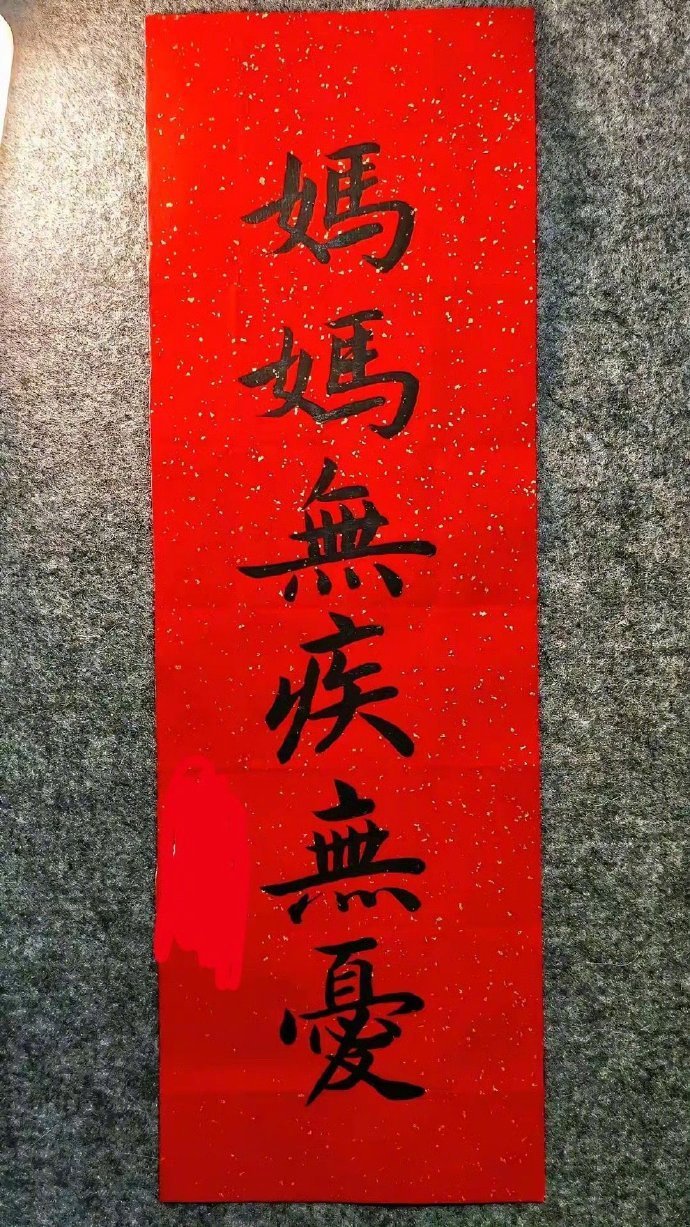 媽媽無疾無憂